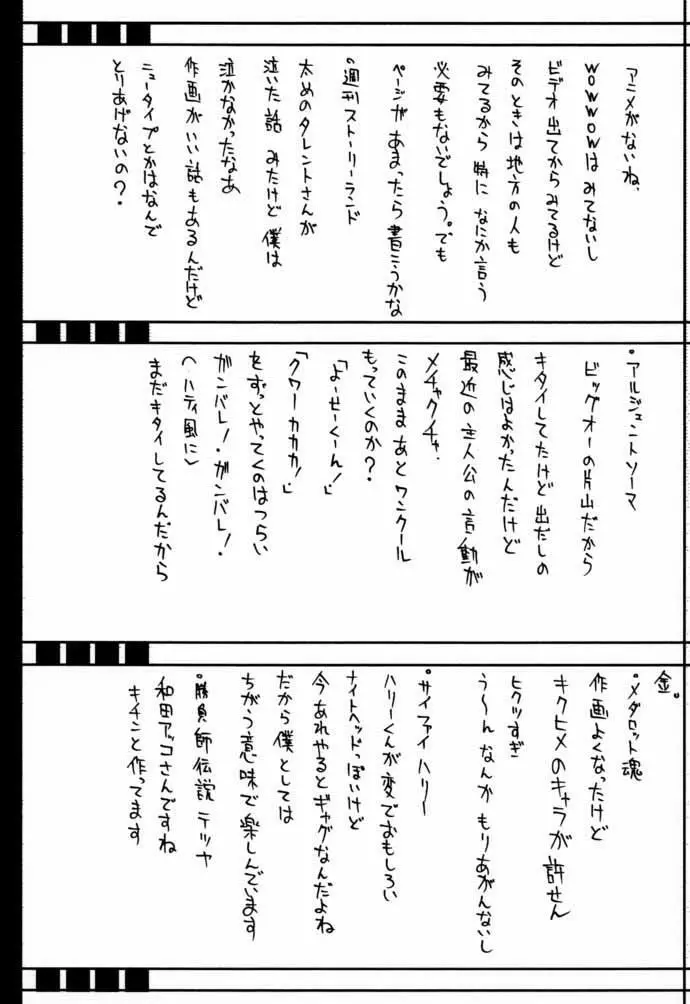 アニメがないね、
WOWWOWは みてないし
ビデオ 出てからみてるけど
そのときは地方の人も
みてるから 特に なにか言う
必要もないでしょう。でも
ページが あまったら 書こうかな
・週刊ストーリーランド
太めのタレントさんが
泣いた話 みたけど 僕は
泣かなかったなあ
作画がいい話もあるんだけど
ニュータイプとかはなんで
とりあげないの?・
・アルジェントソーマ
ビッグオーの片山だから
キタイしてたけど 出だしの
感じはよかったんだけど
最近の主人公の言動が
メチャクチャ.
このまま あと ワンクール
もっていくのか?・
「よーせーくーん!」
「クワーカカカ!」
をずっとやってくのはつらい
ガンバレ!・ガンバレ!・
(ハティ風に)
まだキタイしてるんだから
金。
・メダロット魂
作画よくなったけど
キクヒメのキャラが 許せん
ヒクツすぎ
う〜ん なんか もりあがんないし
・サイファイ ハリー
ハリーくんが変でおもしろい
ナイトヘッドっぽいけど
今 あれやるとギャグなんだよね
だから僕としては
ちがう意味で楽しんでいます
・勝負師伝説 テツヤ
和田アッコさんですね
キチンと作ってます